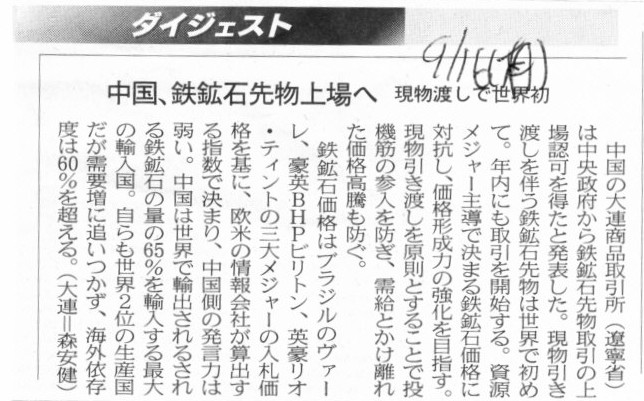 ダイジェスト
9/16(月)
中国、鉄鉱石先物上場へ 現物渡しで世界初
中国の大連商品取引所（遼寧省）
は中央政府から鉄鉱石先物取引の上
場認可を得たと発表した。現物引き
渡しを伴う鉄鉱石先物は世界で初め
て。年内にも取引を開始する。資源
メジャー主導で決まる鉄鉱石価格に
対抗し、価格形成力の強化を目指す。
現物引き渡しを原則とすることで投
機筋の参入を防ぎ、需給とかけ離れ
た価格高騰も防ぐ。
鉄鉱石価格はブラジルのヴァー
レ、豪英BHPビリトン、英豪リオ
・ティントの三大メジャーの入札価
格を基に、欧米の情報会社が算出す
る指数で決まり、中国側の発言力は
弱い。中国は世界で輸出されるされ
る鉄鉱石の量の65%を輸入する最大
の輸入国。自らも世界２位の生産国
だが需要増に追いつかず、海外依存
度は60%を超える。（大連＝森安健）